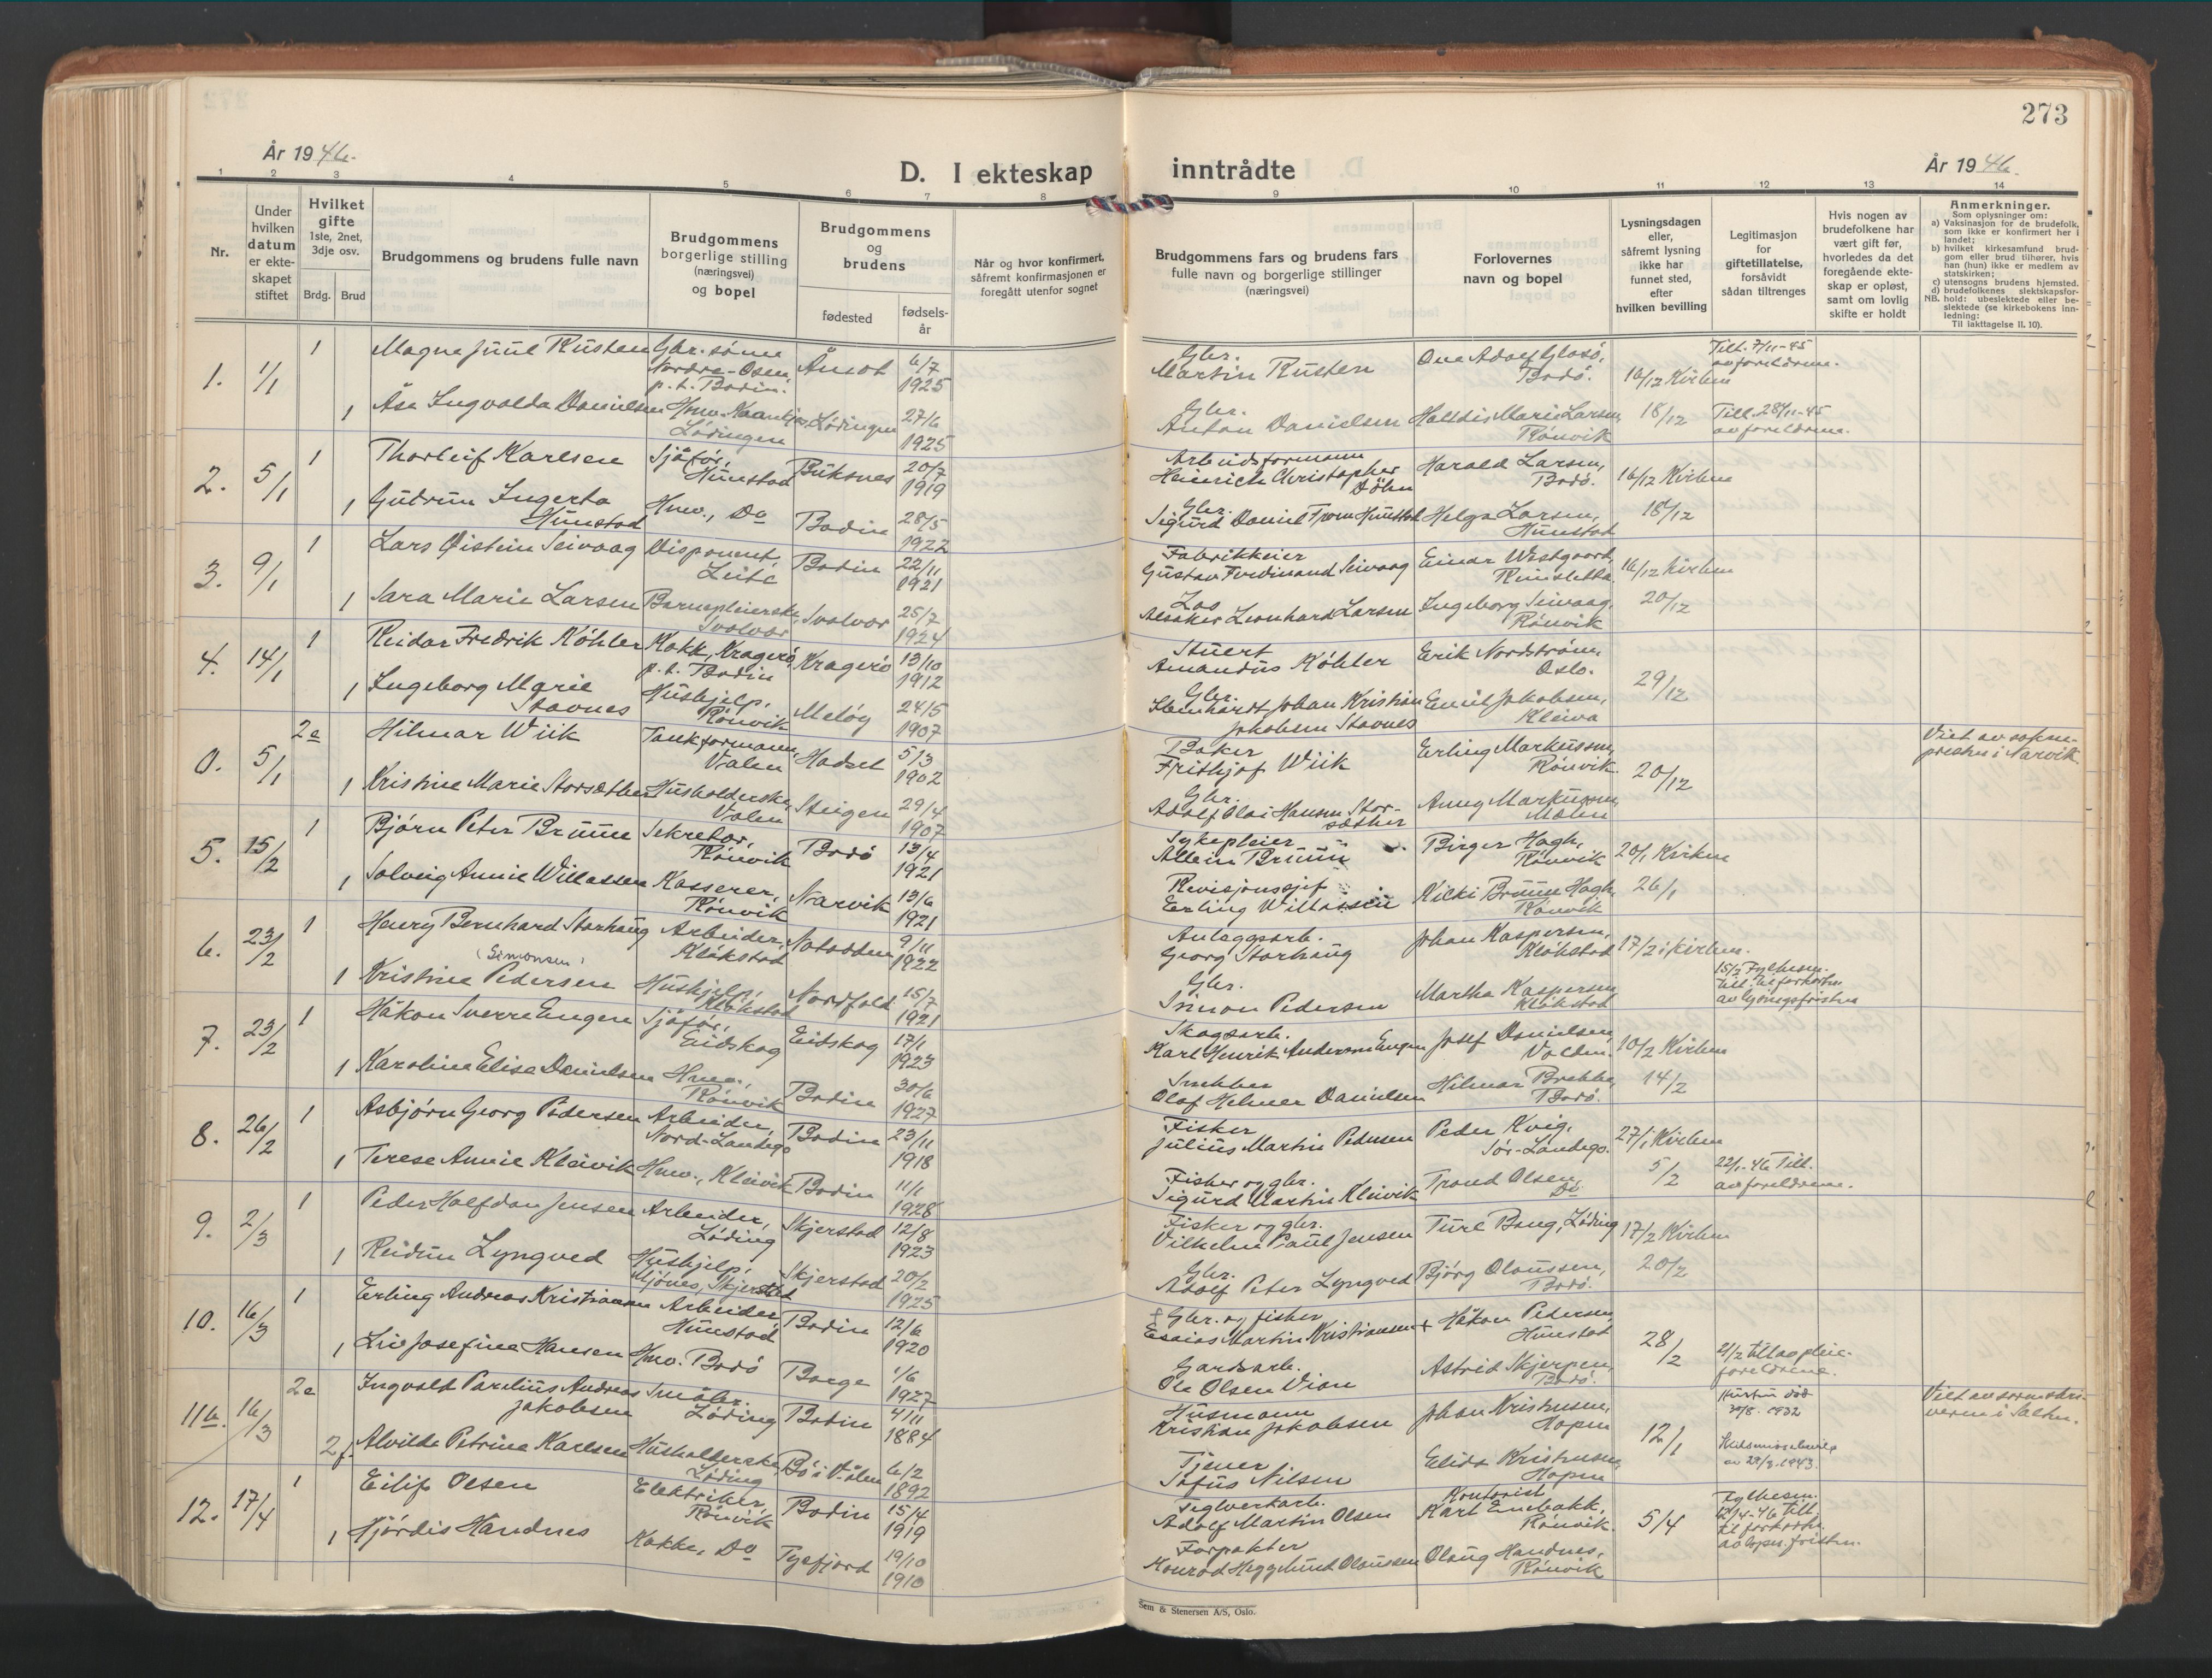 273
År 1946.
D. I ekteskap inntrådte
År 1946.
1 2 3 4 5 6 7 8 9 10 11 12 13 14
Nr.
Under hvilken datum er ekte-skapet stiftet
Hvilket gifte
1ste, 2net, 3dje osv.
Brdg. Brud
Brudgommens og brudens fulle navn
Brudgommens borgerlige stilling (næringsvei) og bopel
Brudgommens og brudens
fødested
fødsels-år
Når og hvor konfirmert, såfremt konfirmasjonen er foregått utenfor sognet
Brudgommens fars og brudens fars
fulle navn og borgerlige stillinger
(næringsvei)
Forlovernes navn og bopel
Lysningsdagen eller, såfremt lysning ikke har funnet sted, efter hvilken bevilling
Legitimasjon for giftetillatelse, forsåvidt sådan tiltrenges
Hvis nogen av brudefolkene har vært gift før, hvorledes da det foregående ekte-skap er opløst, samt om lovlig skifte er holdt
Anmerkninger.
Som oplysninger om:
a) Vaksinasjon for de brudefolk, som ikke er konfirmert her i landet;
b) hvilket kirkesamfund brud-gom eller brud tilhører, hvis han (hun) ikke er medlem av statskirken;
c) utensogns brudens hjemsted.
d) brudefolkenes slektskapsfor-hold: ubeslektede eller be-slektede (se kirkebokens inn-ledning:
NB. Til iakttagelse II. 10).
1. 1/1 1 Magne Juul Rusten Gbr. sønn Nordre-Osen, p. t. Bodin. Åmot 6/7 1925 Gbr. Martin Rusten Ove Adolf Glasø, Bodø. 16/12 Kirken Till. 7/11-45 av foreldrene.
1 Åsa Ingvalda Danielsen Hmv. Lødingen Lødingen 27/6 1925 Gbr. Anton Danielsen Halldis Marie Larsen, Rønvik 18/12 Till. 28/11-45 av foreldrene.
2. 5/1 1 Thorleif Karlsen Sjåfør, Hunstad Buksnes 20/7 1919 Arbeidsformann Heinrich Christopher Døhn Harald Larsen, Bodø. 16/12 Kirken
1 Gudrun Ingerta Hunstad Hmv., Do Bodin 28/5 1922 Gbr. Sigurd Daniel From Hunstad Helga Larsen, Hunstad 18/12
3. 9/1 1 Lars Øistein Seivaag Disponent, Leite Bodin 22/11 1921 Fabrikkeier Gustav Ferdinand Seivaag Einar Westgaard, Reinsletta 16/12 Kirken
1 Sara Marie Larsen Barnepleierske, Svolvær Svolvær 25/7 1924 Los Alsaker Leonhard Larsen Ingeborg Seivaag, Rønvik 20/12
4. 14/1 1 Reidar Fredrik Köhler Kokk, Kragerø, p. t. Bodin Kragerø 13/10 1912 Stuert Amandus Köhler Erik Nordstrøm, Oslo. 29/12
1 Ingeborg Marie Stavnes Hushjelp, Rønvik Meløy 24/5 1907 Gbr. Johan Kristian Jakobsen Stavnes Emil Jakobsen, Kleiva
0. 5/1 2e Hilmar Wiik Tankformann, Valen Hadsel 5/3 1902 Baker Frithjof Wiik Erling Markussen, Rønvik 20/12 Viet av sokne-presten i Narvik
1 Kristine Marie Storsæther Husholderske, Valen Steigen 29/4 1907 Gbr. Adolf Olai Hansen Stor-sæther Anny Markussen,
5. 15/2 1 Bjørn Peter Bruun Sekretær, Rønvik Bodø 13/4 1921 Sykepleier Bruun Birger Hagh, Rønvik 20/1 Kirken
1 Solveig Annie Willassen Kasserer, Rønvik Narvik 13/6 1921 Revisjonssjef Erling Willassen Bruun Hagh, Rønvik 26/1
6. 23/2 1 Henry Bernhard Storhaug Arbeider, Kløkstad Notodden 9/11 1922 Anleggsarb. Georg Storhaug Johan Kaspersen, Kløkstad 17/2 i kirken.
(Simonsen)
1 Kristine Pedersen Hushjelp, Kløkstad Nordfold 15/7 1921 Gbr. Simon Pedersen Martha Kaspersen, Kløkstad 15/2 Fylkesm. till. til forkortn. av lysningsfristen
7. 23/2 1 Håkon Sverre Engen Sjåfør, Eidskog Eidskog 17/1 1923 Skogsarb. Karl Henrik Andersen Engen Josef Danielsen, Valen 10/2 Kirken
1 Karoline Elise Danielsen Hmv., Rønvik Bodin 30/6 1927 Snekker Olaf Helmer Danielsen Hilmar Brekke, Bodø. 14/2
8. 26/2 1 Asbjørn Georg Pedersen Arbeider, Nord-Landego Bodin 23/11 1918 Fisker Julius Martin Pedersen Peder Kvig, Sør-Landego. 27/1 Kirken
1 Terese Annie Kleivik Hmv., Kleivik Bodin 11/1 1928 Fisker og gbr. Sigurd Martin Kleivik Trond Olsen, Do 5/2 22/1-46 Till. av foreldrene.
9. 2/3 1 Peder Halfdan Jensen Arbeider, Løding Skjerstad 12/8 1923 Fisker og gbr. Vilhelm Paul Jensen Ture Bang, Løding 17/2 Kirken
1 Reidun Lyngved Hushjelp, Mjønes, Skjerstad Skjerstad 20/2 1925 Gbr. Adolf Peter Lyngved Bjørg Olaussen, Bodø. 20/2
10. 16/3 1 Erling Andreas Kristiansen Arbeider, Hunstad Bodin 12/6 1920 Gbr. og fisker Esaias Martin Kristiansen + Håkon Pedersen, Hunstad 28/2
1 Liv Josefine Hansen Hmv. Bodø Borge 1/6 1927 Gardsarb. Ole Olsen Vian Astrid Skjerpen, Bodø. 21/2 till. av pleie-foreldrene.
11b. 16/3 2e Ingvald Parelius Andreas Jakobsen Småbr. Løding Bodin 4/11 1884 Husmann Kristian Jakobsen Johan Kristensen, Hopen 12/1 Hustru død 30/8. 1932 Viet av sorenskri-veren i Salten.
2f. Alvilde Petrine Karlsen Husholderske, Løding Bø i V.ålen 6/2 1892 Tjener Sofus Nilsen Elida Kristensen, Hopen av 28/8. 1943.
12. 17/4 1 Eilif Olsen Elektriker, Rønvik Bodin 15/4 1919 Teglverkarb. Adolf Martin Olsen Kontorist Karl Enebakk, Rønvik. 5/4 Fylkesm. 12/4-46 till. til forkortn. av lysn. fristen.
1 Hjørdis Handnes Kokke, Do Tysfjord 19/10 1910 Forpakter Konrad Hegglund Olaussen Olaug Handnes, Rønvik
Sem & Stenersen A/S, Oslo.